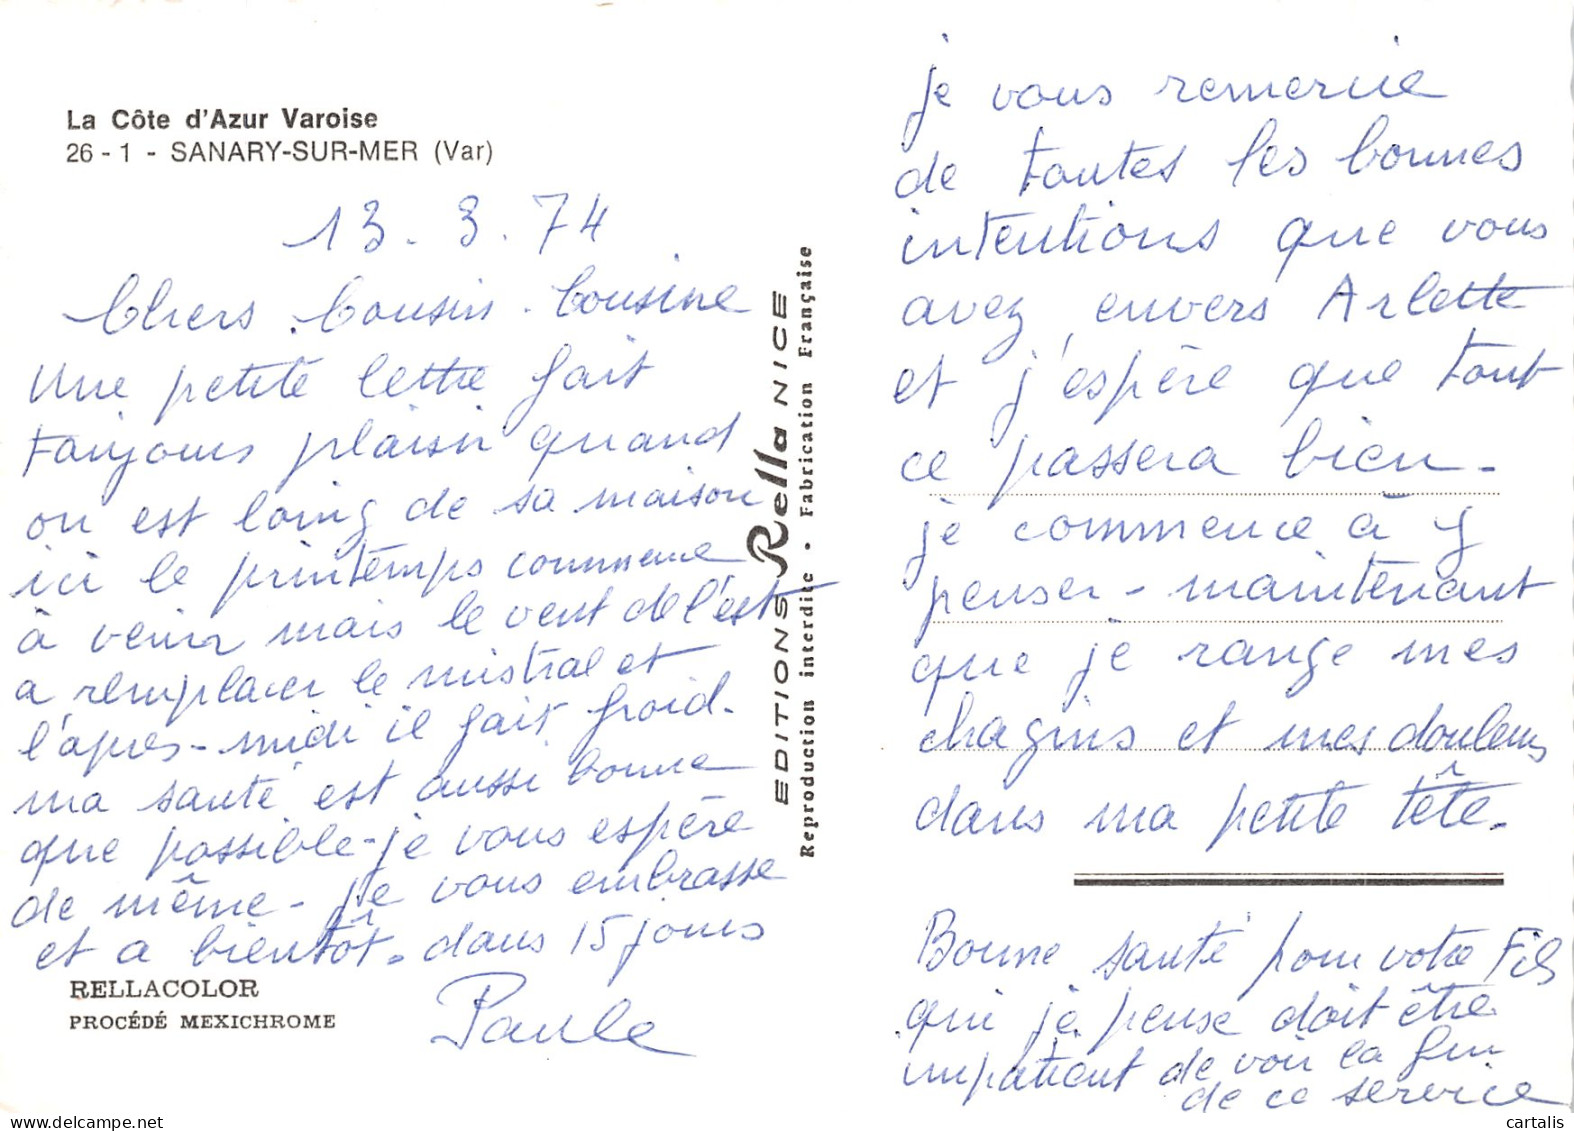 La Côte d'Azur Varoise
26 - 1 - SANARY-SUR-MER (Var)
13. 3. 74
Chers Cousin. Cousine
Une petite lettre fait
toujours plaisir quand
on est loing de sa maison
ici le printemps commence
à venir mais le vent de l'est
a remplacer le mistral et
l'après-midi il fait froid.
ma santé est aussi bonne
que possible - je vous espère
de même - je vous embrasse
et a bientôt. dans 15 jours
Paule
RELLACOLOR
PROCÉDÉ MEXICHROME
EDITIONS Rella NICE
Reproduction interdite • Fabrication Française
je vous remercie
de toutes les bonnes
intentions que vous
avez envers Arlette
et j'espère que tout
ce passera bien -
je commence à y
penser - maintenant
que je range mes
chagins et mes douleurs
dans ma petite tête.
Bonne santé pour votre Fils
qui je pense doit être
impatient de voir la fin
de ce service
cartalis